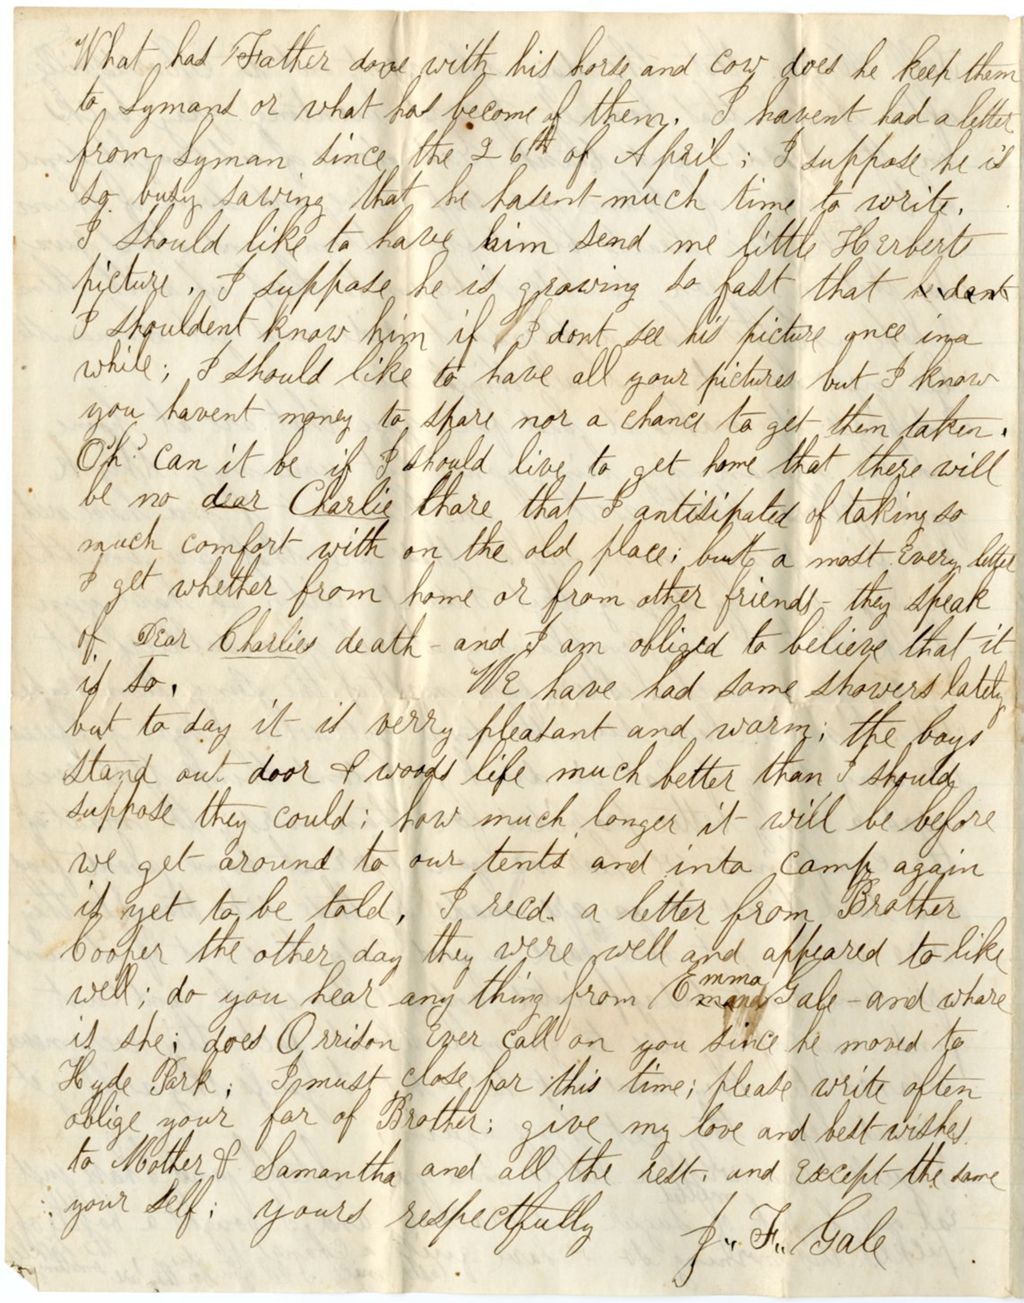 What has Father done with his horse and cow does he keep them
to Lymans or what has become of them. I havent had a letter
from Lyman since the 26th of April; I suppose he is
so busy sawing that he hasent much time to write.
I should like to have him send me little Herberts
picture. I suppose he is growing so fast that he dont
I shouldent know him if I dont see his picture once in a
while; I should like to have all your pictures but I know
you havent money to spare nor a chance to get them taken.
Oh! can it be if I should live to get home that there will
be no dear Charlie thare that I antisipated of taking so
much comfort with on the old place; but a most Every letter
I get whether from home or from other friends - they speak
of Dear Charlies death - and I am obliged to believe that it
is so. We have had some showers lately
but to day it is verry pleasant and warm; the boys
stand out door & woods life much better than I should
suppose they could; how much longer it will be before
we get around to our tents and into camp again
is yet to be told. I recd. a letter from Brother
Cooper the other day they were well and appeared to like
well; do you hear any thing from Emma Gale - and whare
is she; does Orrison Ever call on you since he moved to
Hyde Park; I must close for this time; please write often
oblige your far of Brother; give my love and best wishes
to Mother & Samantha and all the rest. and Except the same
your Self; yours respectfully
J,, F,, Gale